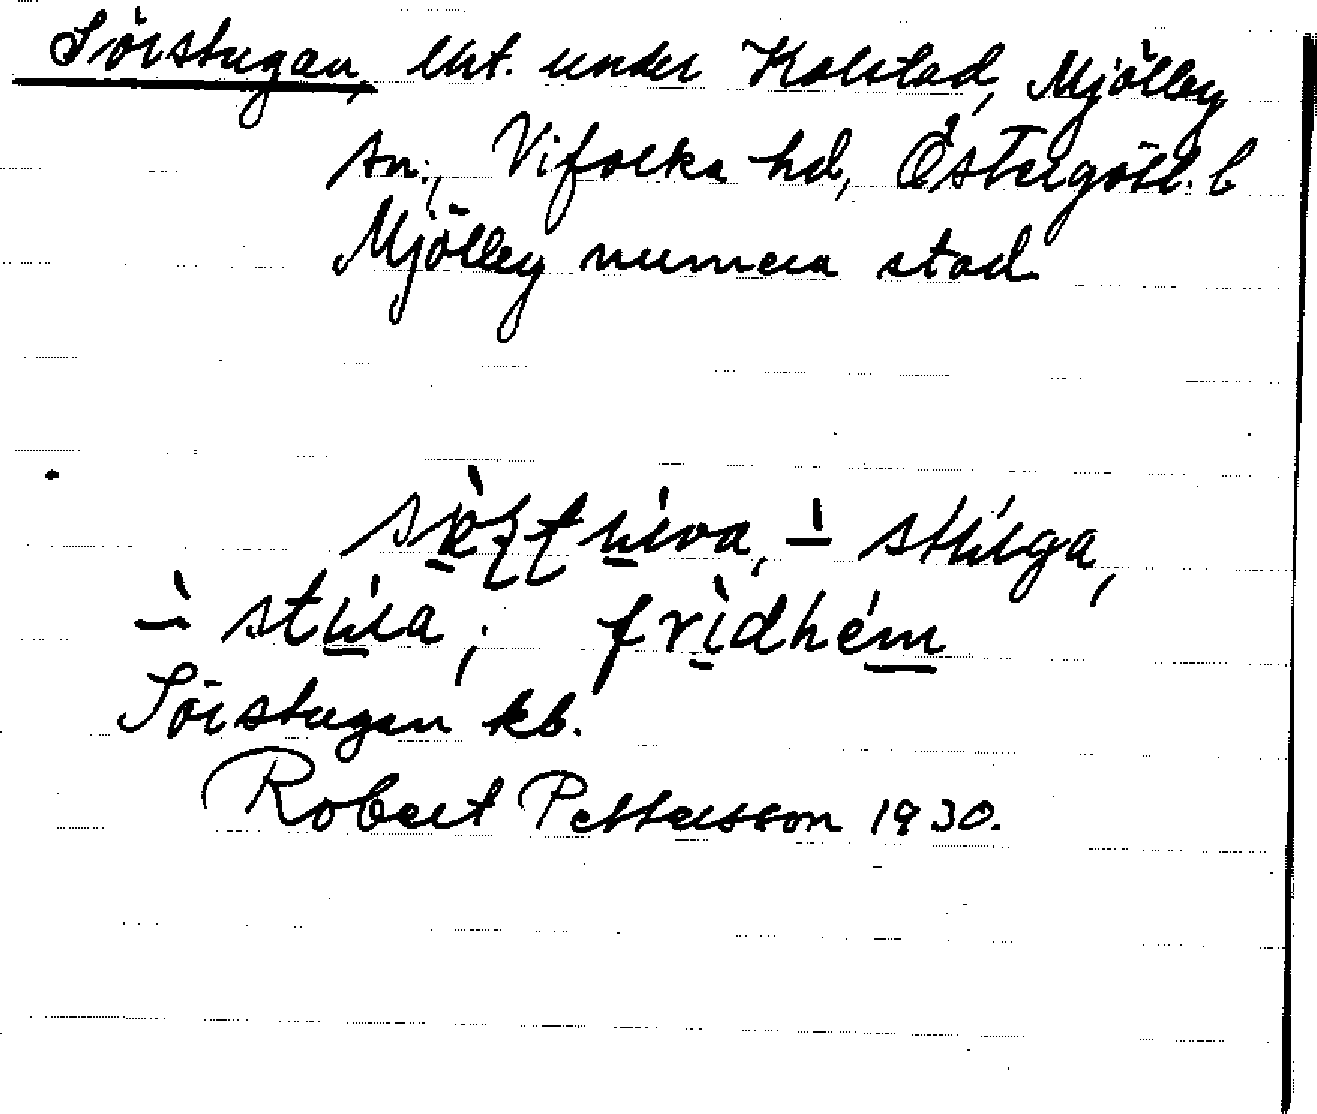 Sörstugan, lht. under Kolstad, Mjölby
sn., Vifolka hd, Östergötl. l
Mjölby numera stad
– stúga,
– stúa; frìdhém
Sörstugan kb.
Robert Pettersson 1930.